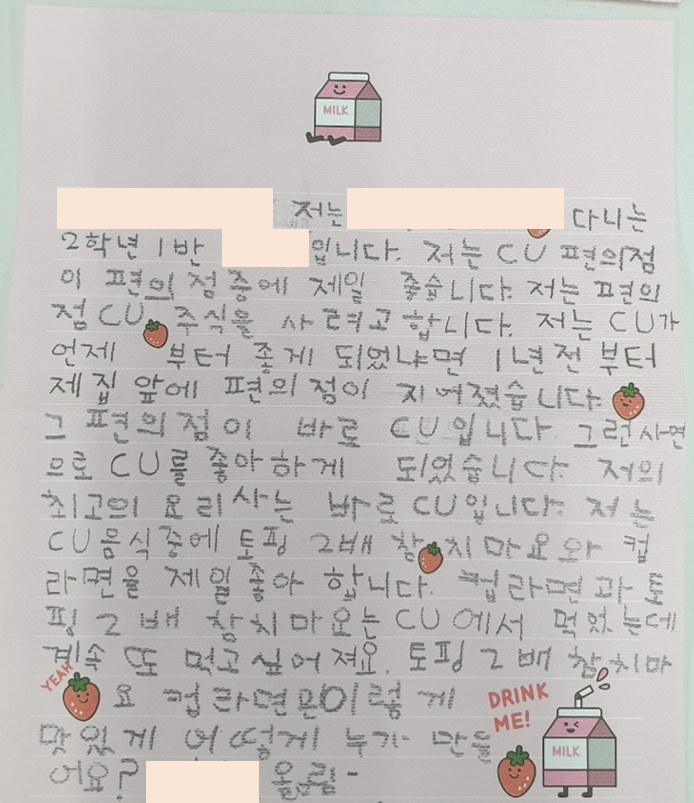 MILK
저는 다니는
2학년 1반 입니다. 저는 CU 편의점
이 편의점 중에 제일 좋습니다. 저는 편의
점 CU 주식을 사려고 합니다. 저는 CU가
언제 부터 좋게 되었냐면 1년전 부터
제 집 앞에 편의점이 지어졌습니다.
그 편의점이 바로 CU입니다. 그런 사연
으로 CU를 좋아하게 되었습니다. 저의
최고의 요리사는 바로 CU입니다. 저는
CU음식중에 토핑 2배 참치마요와 컵
라면을 제일좋아 합니다. 컵라면과 토
핑 2배 참치마요는 CU에서 먹었는데
계속 또 먹고싶어져요. 토핑 2배 참치마
YEAH
요 컵라면은 이렇게
DRINK
ME!
맛있게 어떻게 누가 만들
MILK
어요? 올림-